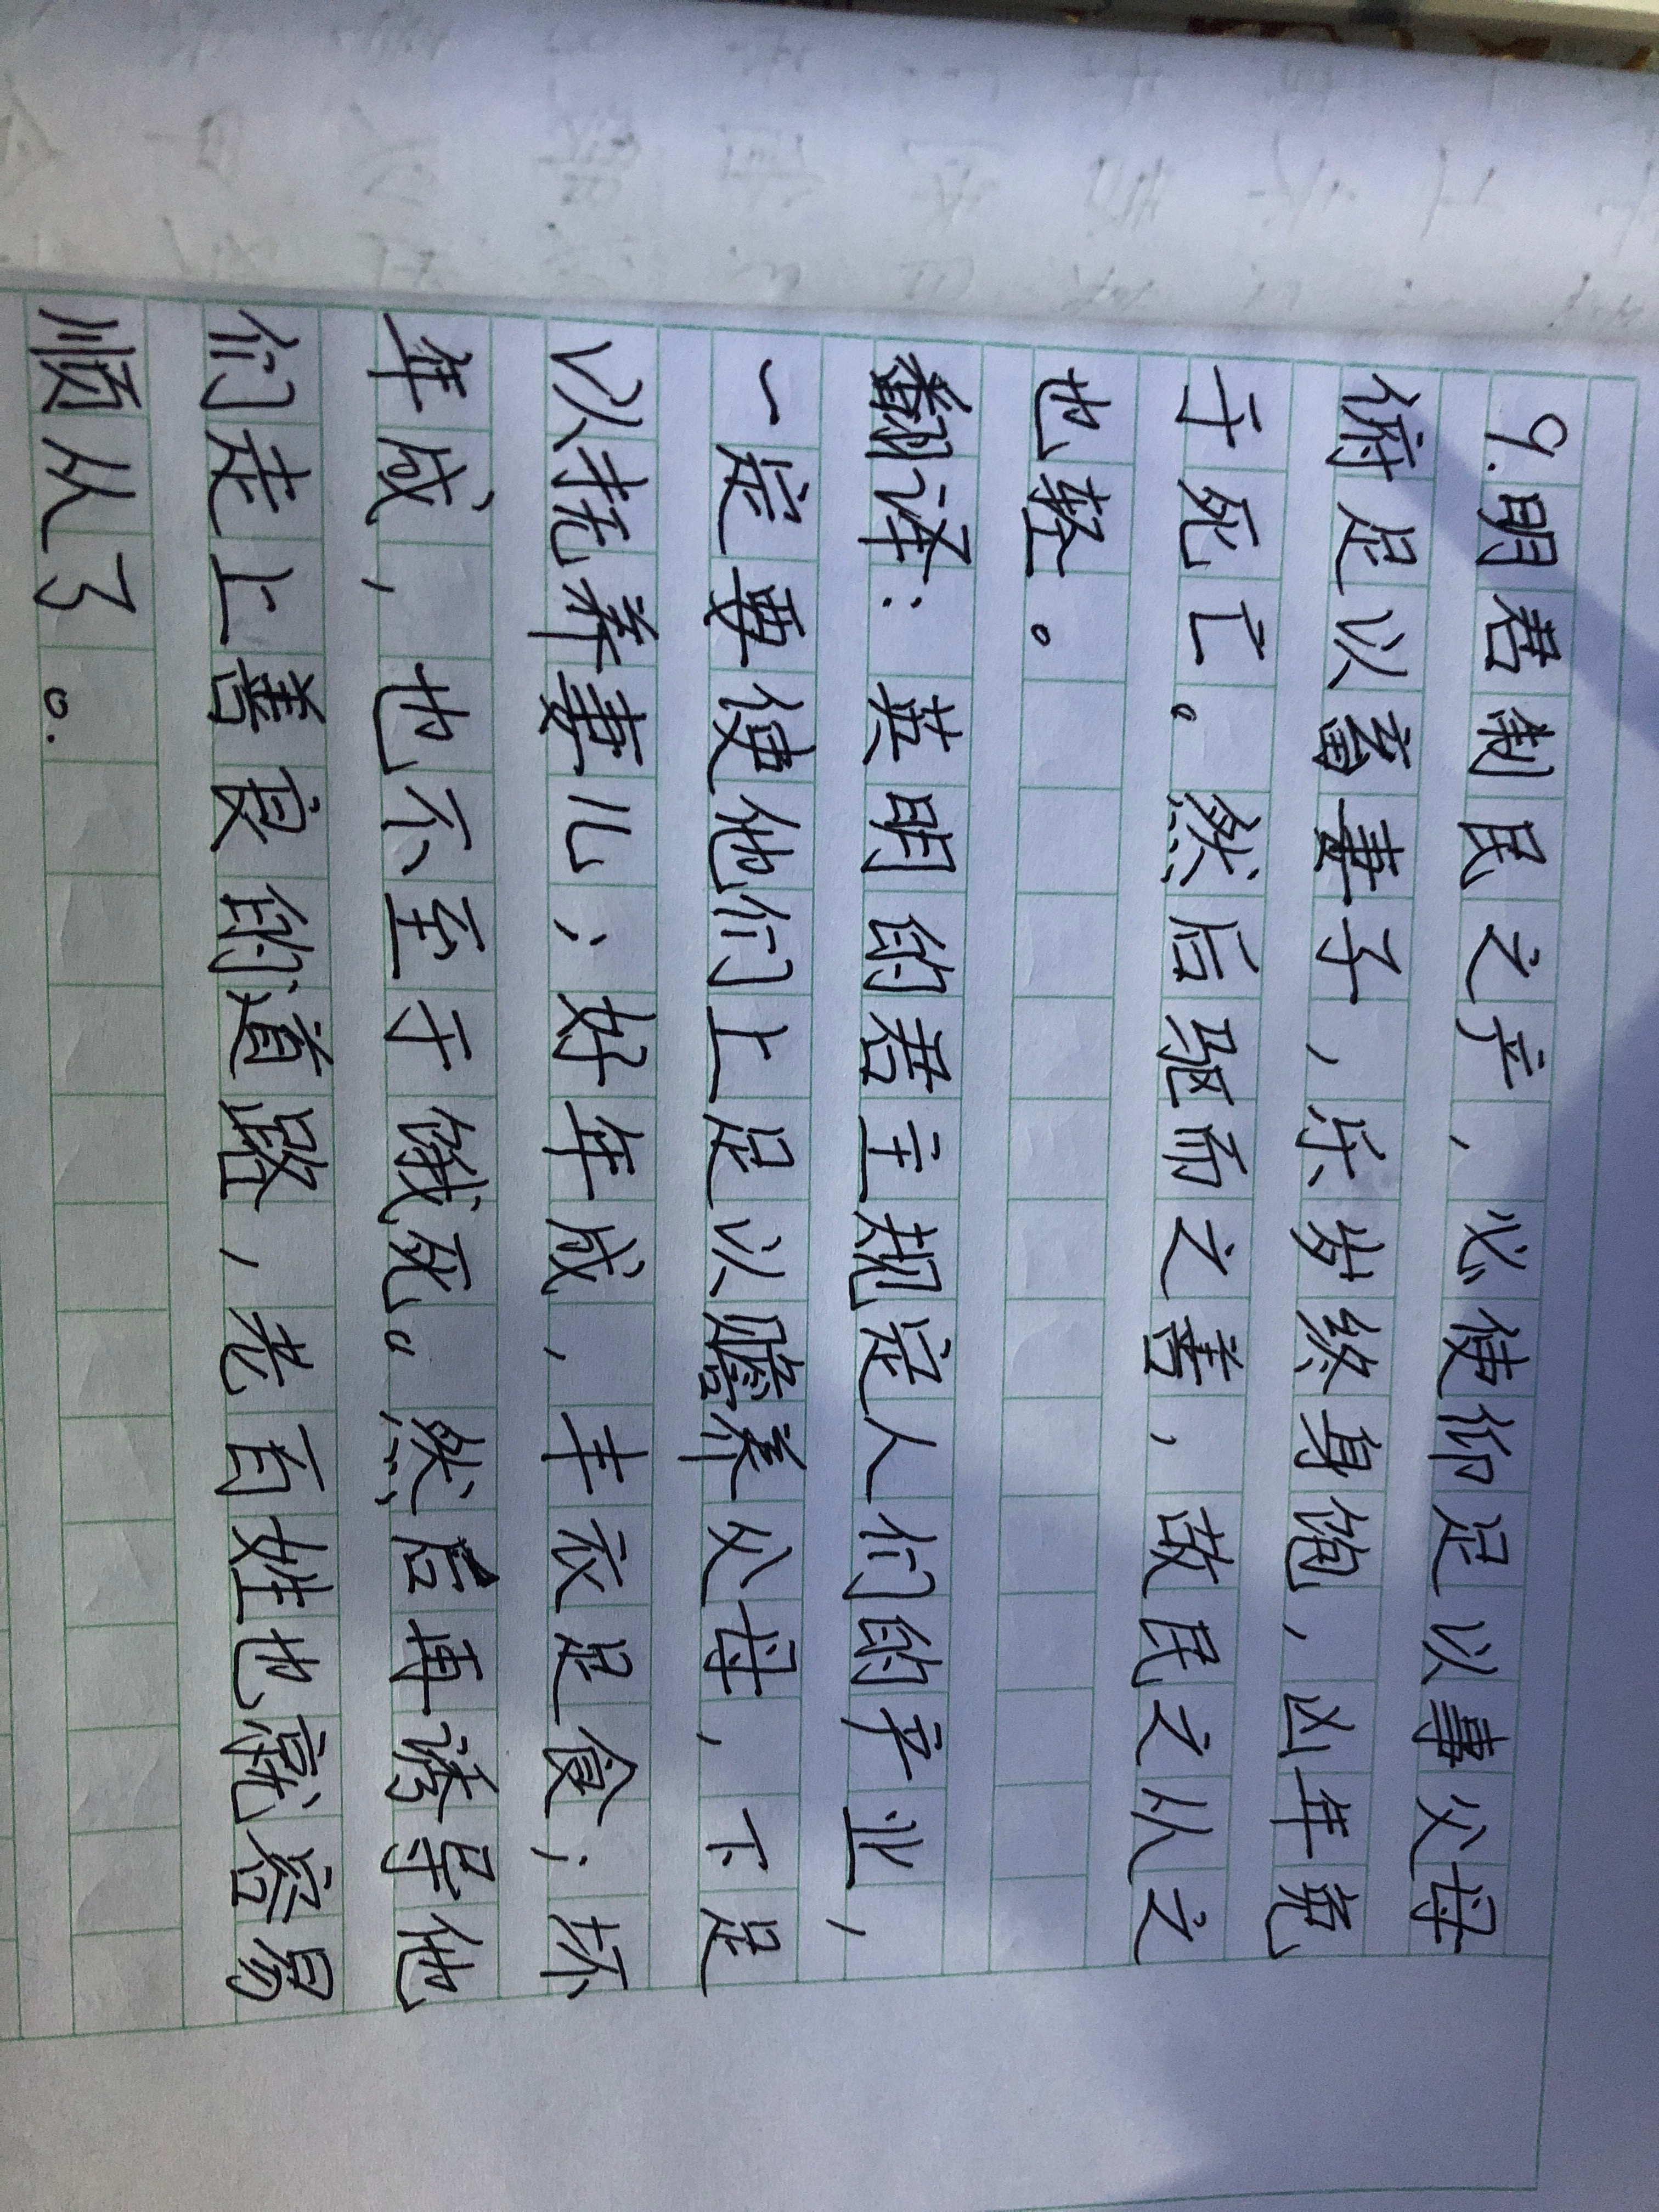 9.明君制民之产,必使仰足以事父母
俯足以畜妻子,乐岁终身饱,凶年免
于死亡。然后驱而之善,故民之从之
也轻。
翻译:英明的君主规定人们的产业,
一定要使他们上足以赡养父母,下足
以抚养妻儿;好年成,丰衣足食;坏
年成,也不至于饿死。然后再诱导他
们走上善良的道路,老百姓也就容易
顺从了。